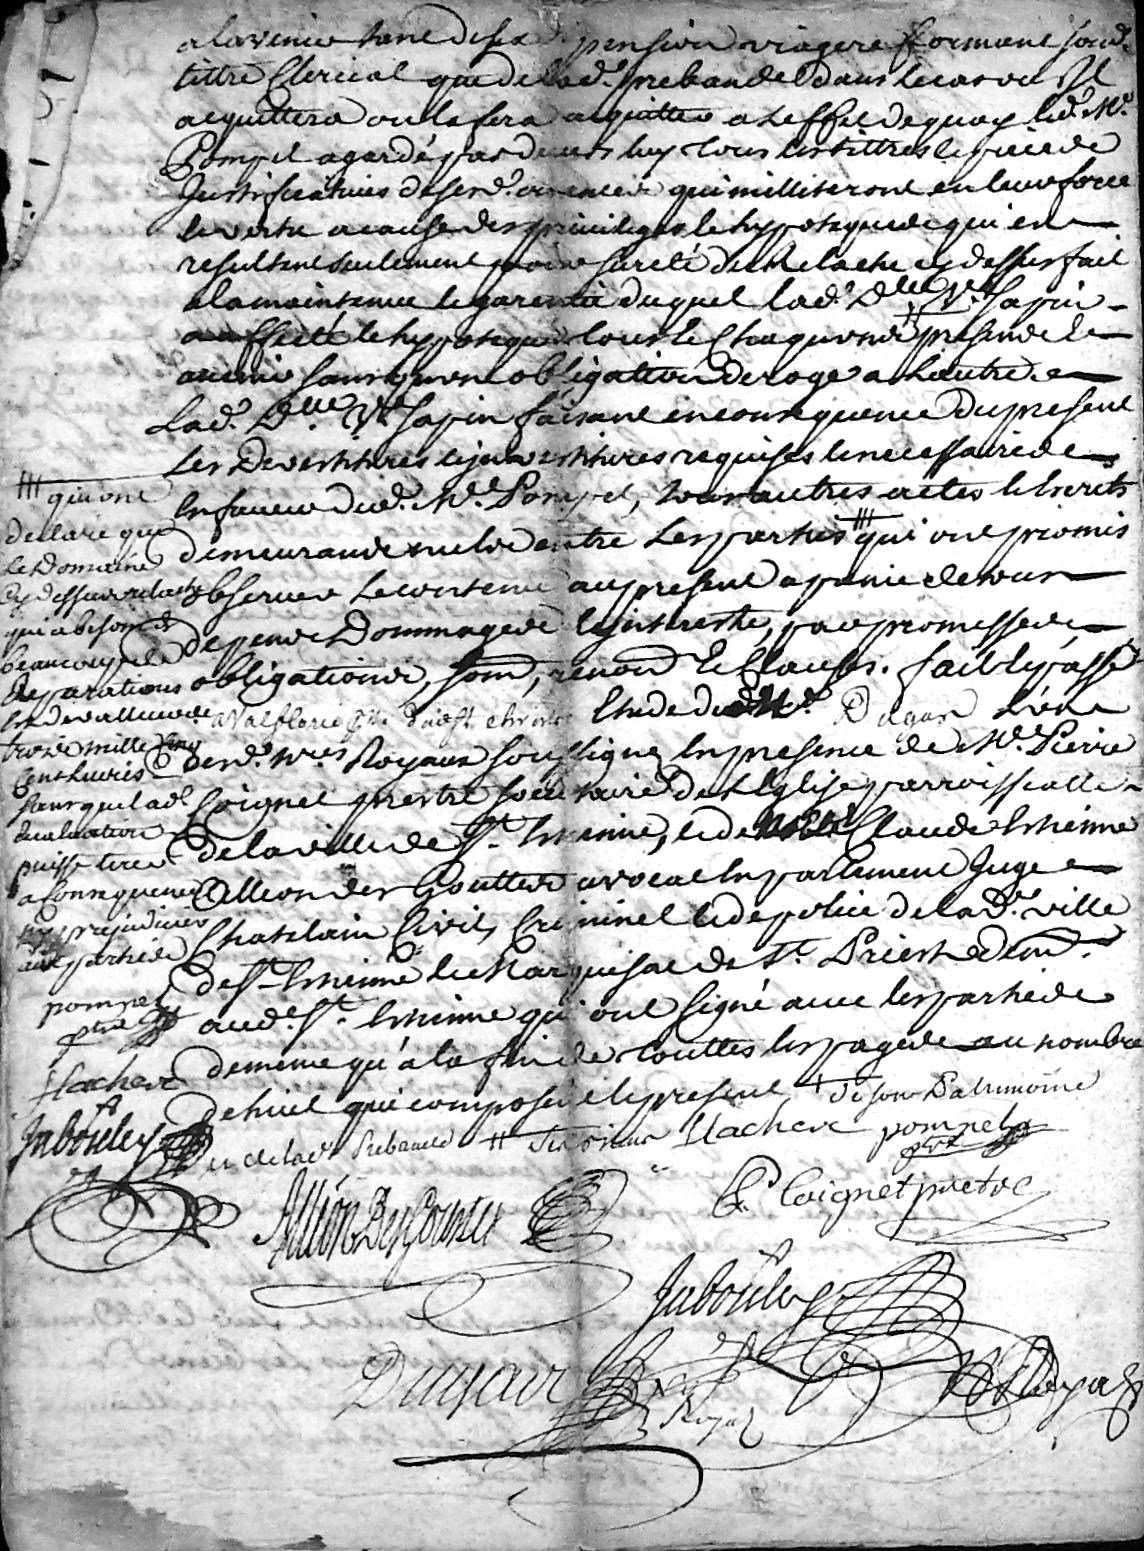 a lavenir tant de sa pension viagere formant sond.
tittre Clerical que de lad.e prebande dans le cas ou Il
acquittera ou la fera acquitter a Leffet de quoy led. Mre
Pompet a gardé par devers luy tous les tittres et pieces
Justificatives de sesd. creances qui milliteront en leur force
et vertu a cause des privileges et hypoteques qui en
resultent seulement pour sureté du Relache cy dessus fait
a la maintenue et garentie duquel lad. Dlle Vve Sapin
a affecté et hypotequé tous et Chaquuns ses presens et
avenir sans qu'une obligation deroge a Lautre
Lad. Dlle Vve Sapin faisant en consequence du present
Les Devestitures et jnvestitures requises et necessaires
En faveur dud. Mre Pompet, tous autres actes et ecrits
demeurants nuls entre Les parties qui ont promis
observer Le contenu au present a peine de tous
depens Dommages et jnterests, par promesses
obligations, Soum., renon. et Clauses. fait et passé
a Valfloric Etude dud. Mre Dugas L'un
desd. nres Royaux soussignez En presence de Mre Pierre
Coignet prestre societaire de L'Eglise parroissialle
de la ville de St. Etienne, et de Claude Etienne
Allion des Gouttes avocat En parlement Juge
Chatelain Civil, Criminel et de police de lad. ville
de St. Etienne et Marquisat de St. Priest Dem.
aud. St. Etienne qui ont signé avec les parties
de meme qu'a la fin de touttes les pages au nombre
de huit qui composent le present + de son Patrimoine
et de lad. Prebande ++ ses biens Flachere pompet
ptre
qui ont
declaré que
Le Domaine
cy dessus relaché
qui a besoin de
beaucoup de
Reparations
est de valleur de
trois mille cinq
Cent livres
sans que lad.
evaluation
puisse tirer
a Consequence
ny prejudicier
aux parties
pompet
ptre
Flachere
Jabouley
Allion Des Gouttes
P. Coignet pretre
Jabouley
Dugas
nre
Royal